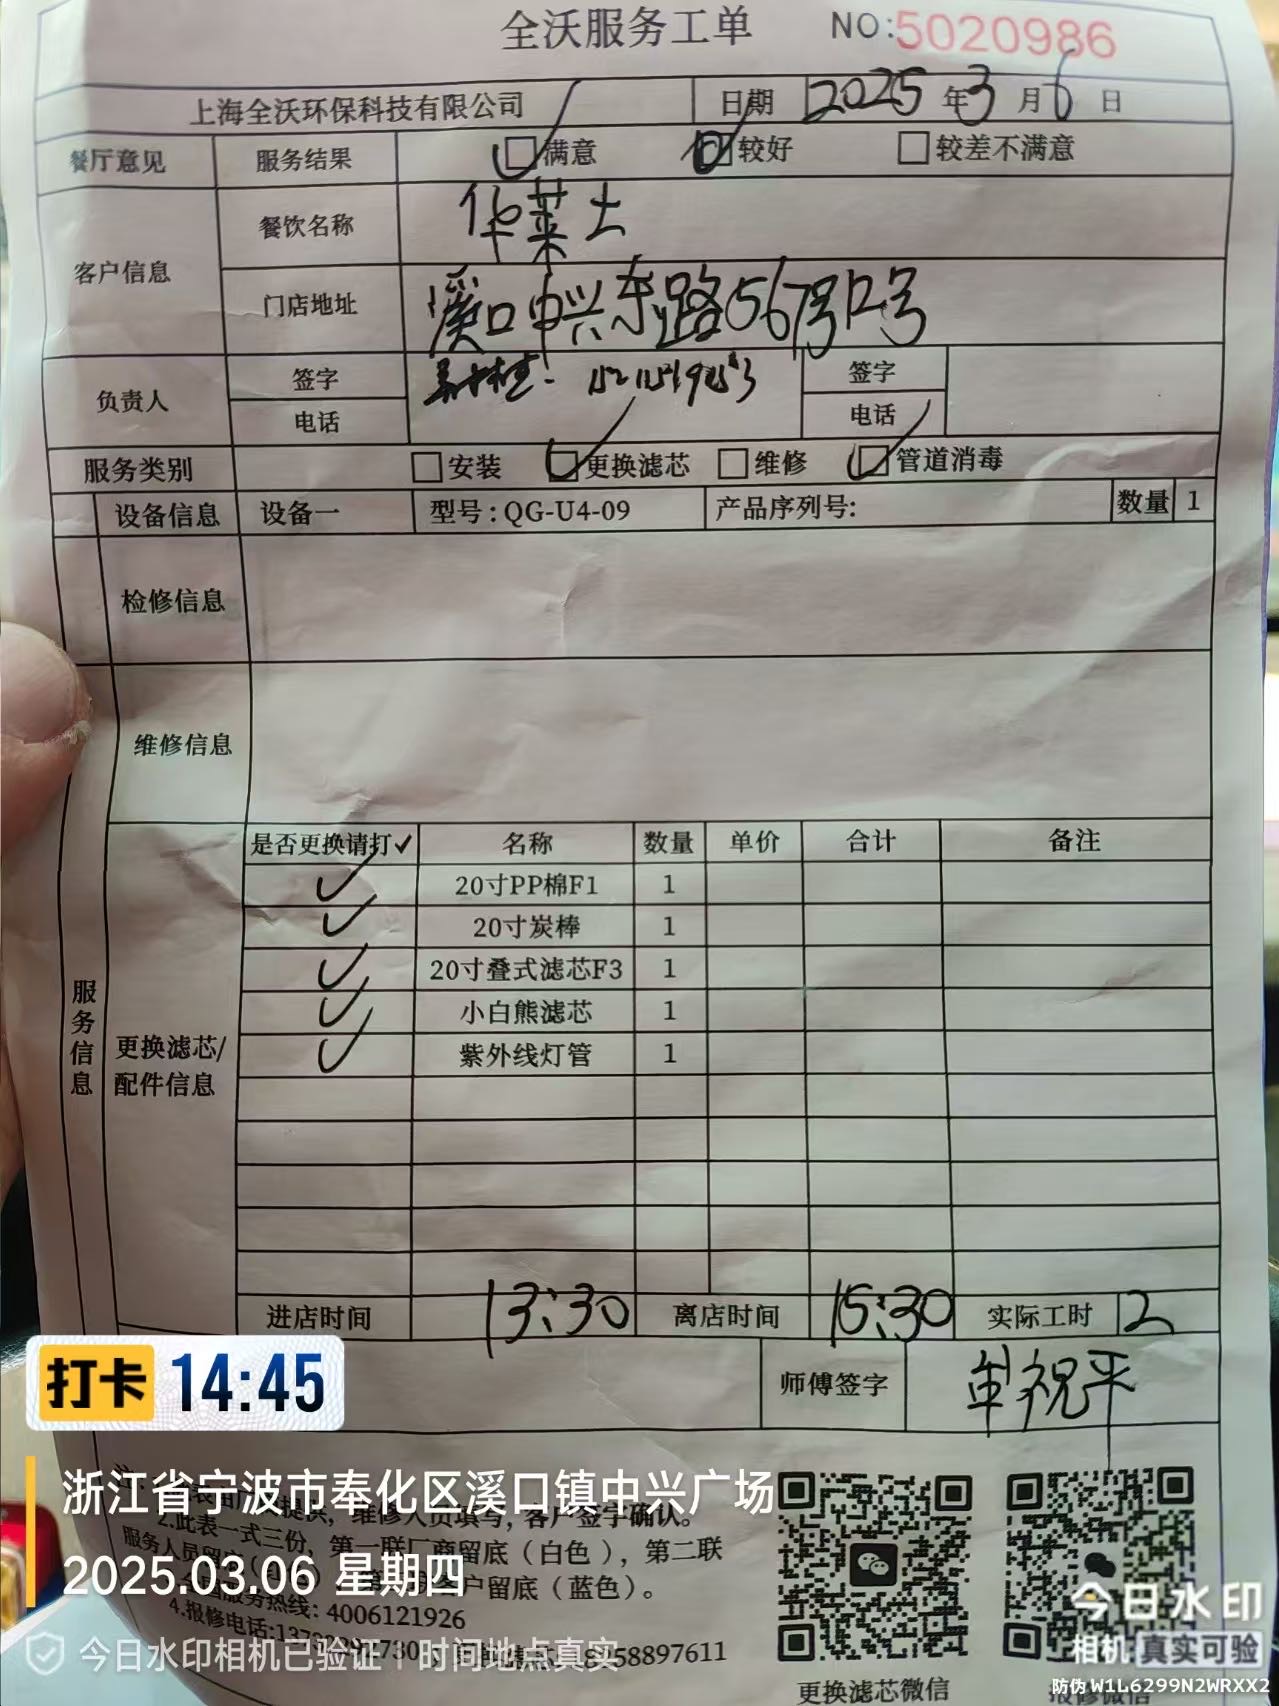 全沃服务工单 NO:5020986
上海全沃环保科技有限公司 日期 2025 年 3 月 6 日
餐厅意见 服务结果 满意 较好 较差不满意
客户信息 餐饮名称 华莱士
门店地址 溪口中兴东路567号12号
负责人 签字 签字
电话 电话
服务类别 安装 更换滤芯 维修 管道消毒
设备信息 设备一 型号:QG-U4-09 产品序列号: 数量 1
检修信息
维修信息
是否更换请打✓ 名称 数量 单价 合计 备注
✓ 20寸PP棉F1 1
✓ 20寸炭棒 1
✓ 20寸叠式滤芯F3 1
✓ 小白熊滤芯 1
✓ 紫外线灯管 1
服务信息
更换滤芯/
配件信息
进店时间 13:30 离店时间 15:30 实际工时 2
师傅签字 祝平
打卡 14:45
浙江省宁波市奉化区溪口镇中兴广场
2025.03.06 星期四
今日水印相机已验证 时间地点真实
提供，维修人员填写，客户签字确认。
2.此表一式三份，第一联厂商留底（白色），第二联
服务人员留底 客户留底（蓝色）。
服务热线: 4006121926
4.报修电话: 58897611
更换滤芯微信 报修微信
今日水印
相机 真实可验
防伪 W1L6299N2WRXX2